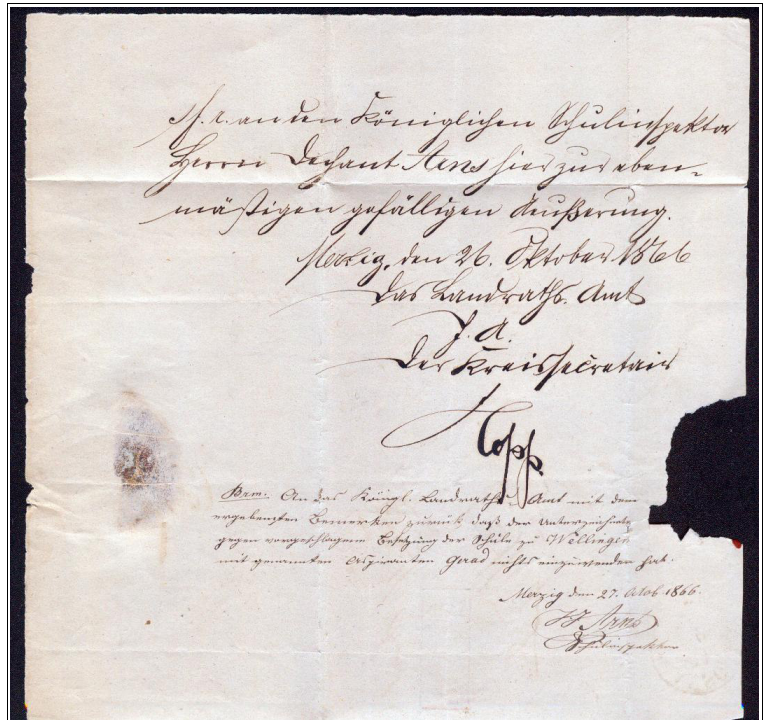 an den Königlichen Schulinspektor
Herrn Dechant Arns hier zur eben-
mäßigen gefälligen Äußerung.
Merzig, den 26. Oktober 1866
Das Landraths-Amt
J. A.
Der Kreissecretair
Brm. An das Königl. Landraths-Amt mit dem
ergebensten Bemerken zurück daß der Unterzeichnete
gegen vorgeschlagene Besetzung der Schule zu Wellingen
mit genannten Aspiranten nichts einzuwenden hat.
Merzig den 27. Octob. 1866.
Arns
Schulinspektor